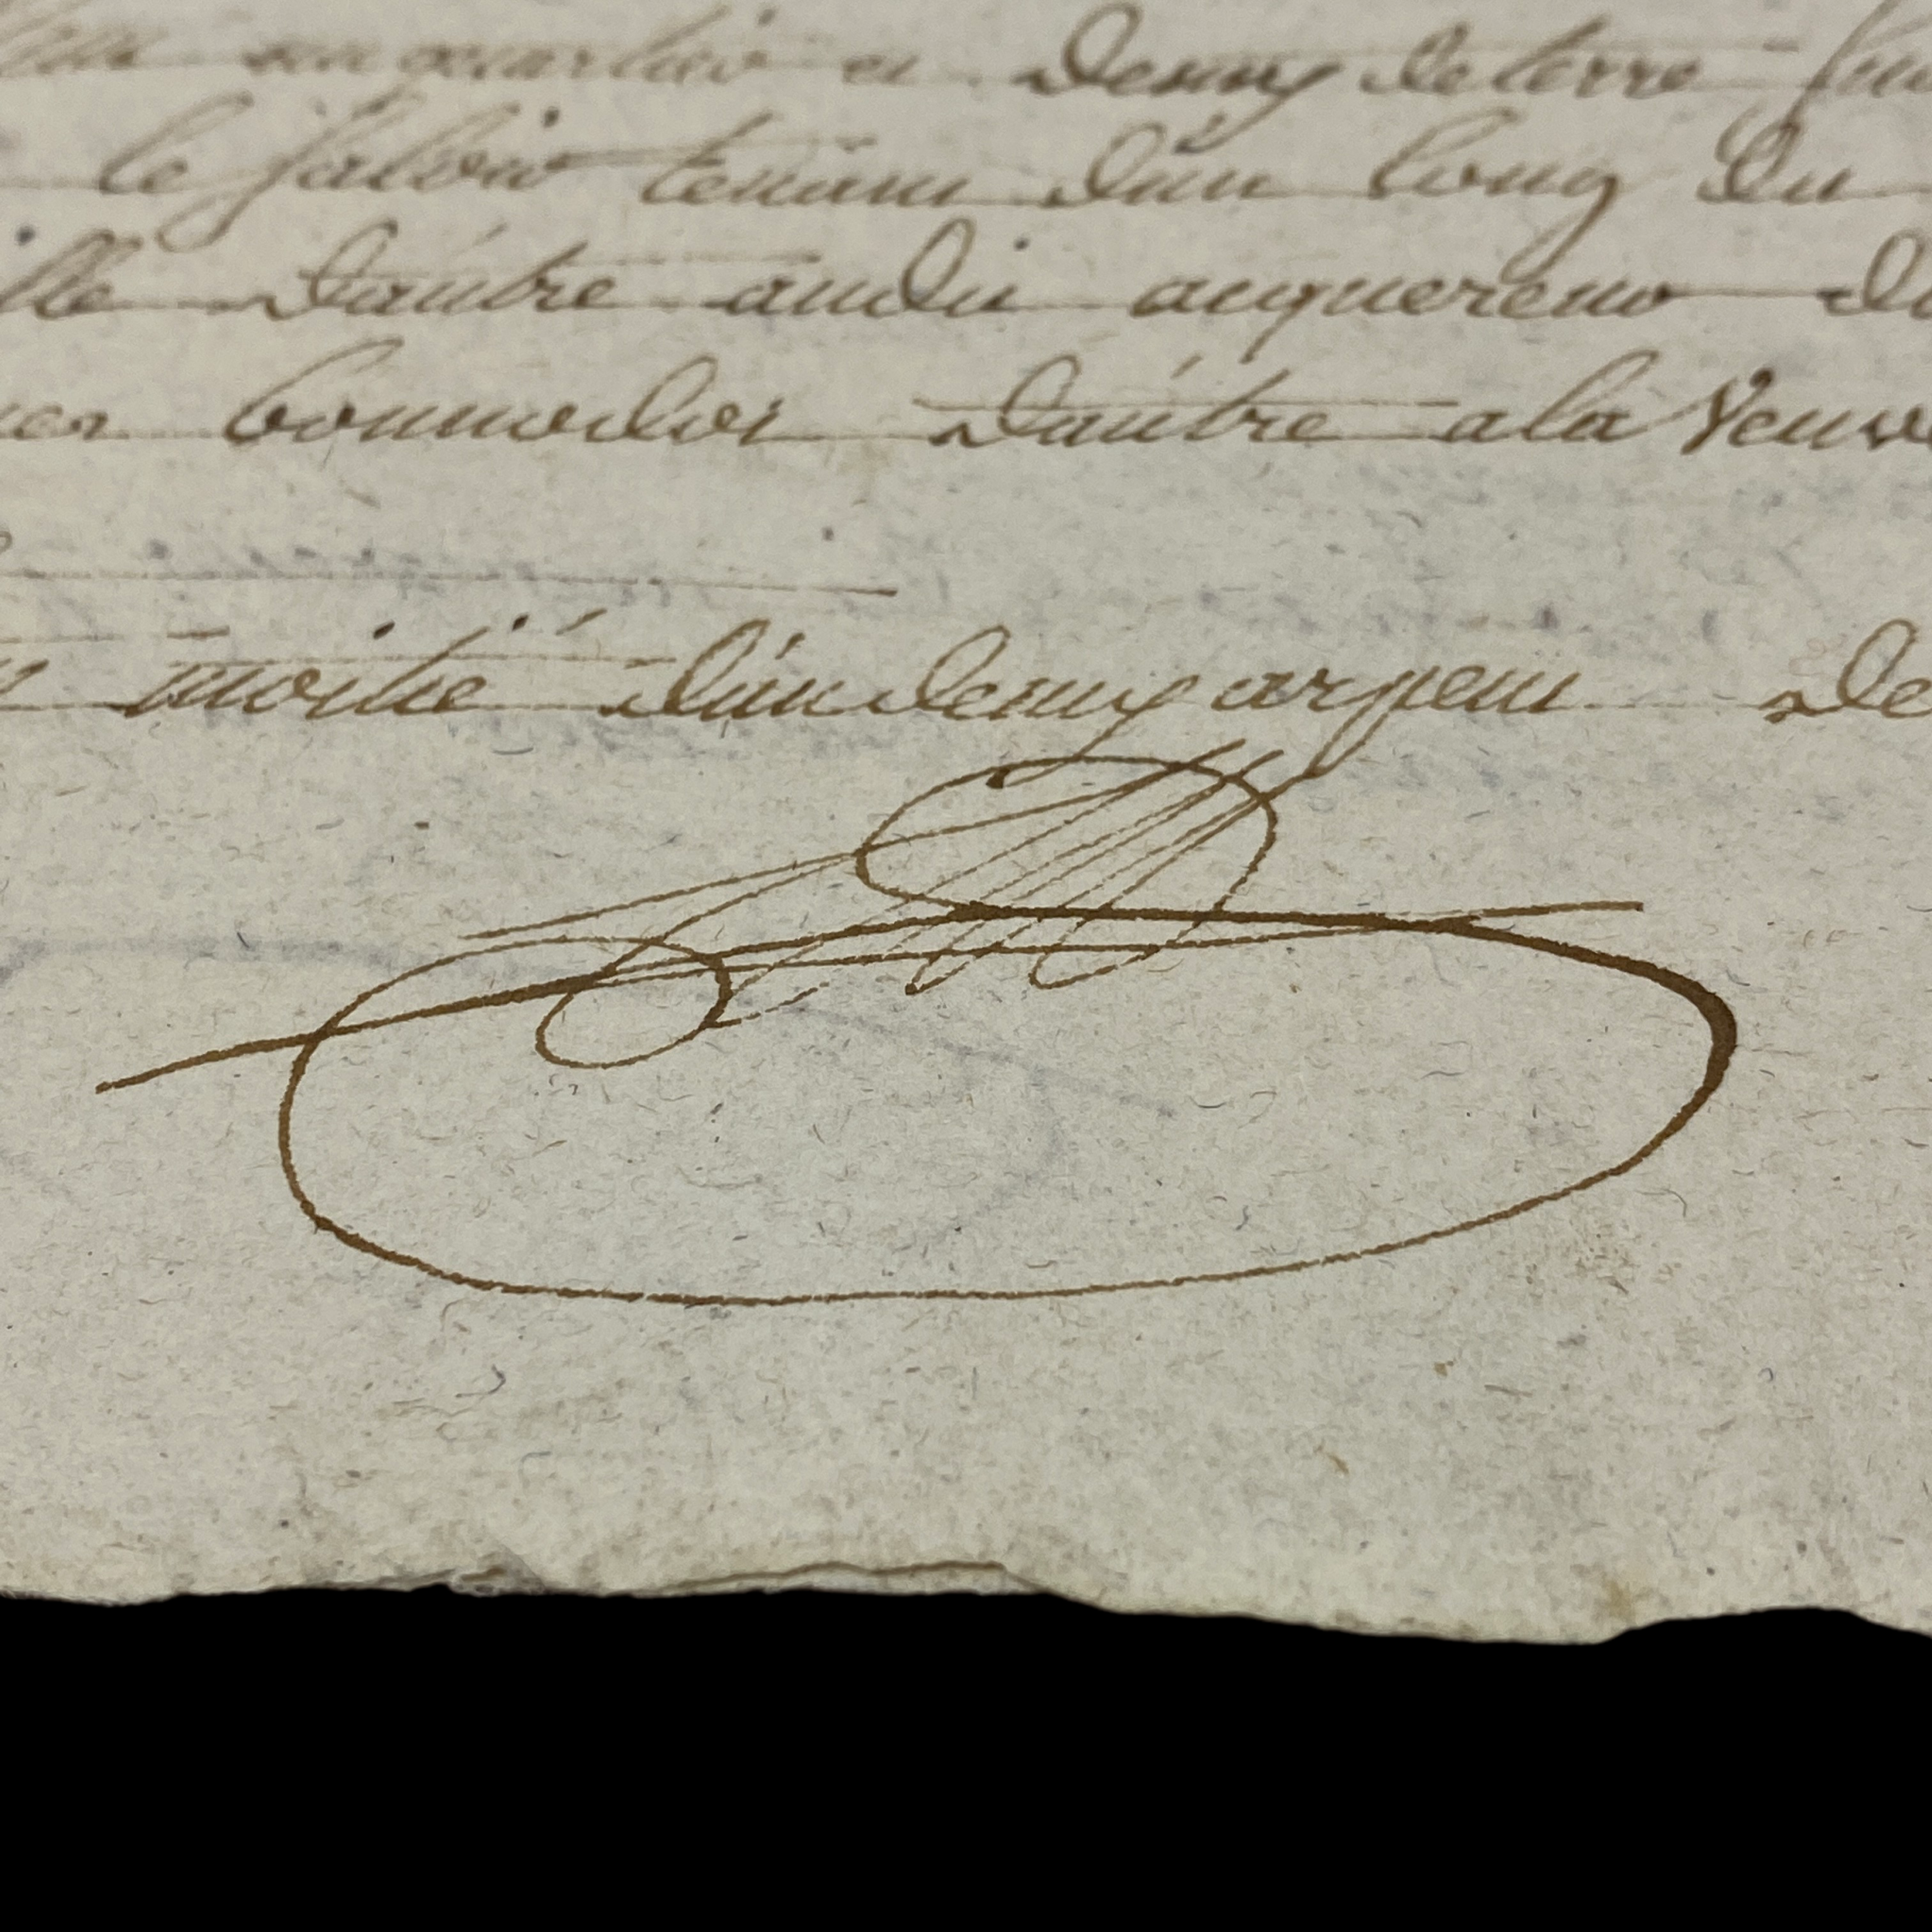 un quartier et demy de terre
le sablon tenant d'un long du
lle d'autre audit acquereur d
d'autre a la veuve
moitié d'un demy arpent de